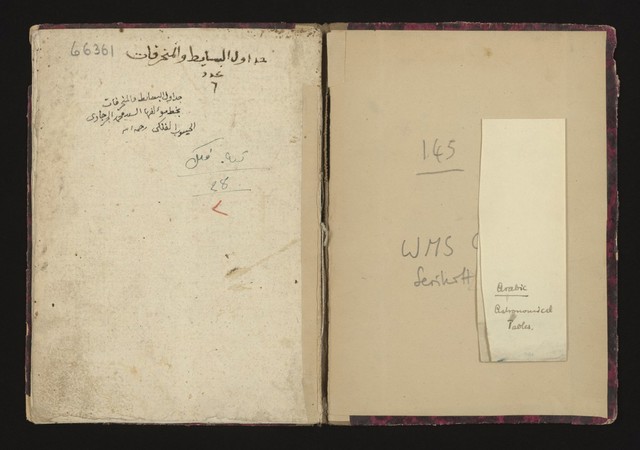 66361
جداول البسايط والمنحرفات
عدد
٦
جداول البسايط والمنحرفات
بخط مؤلفها السيد
الفلكي رحمه الله
فلك
٢٨
145
WMS
Serikoff
Arabic
Astronomical
Tables.